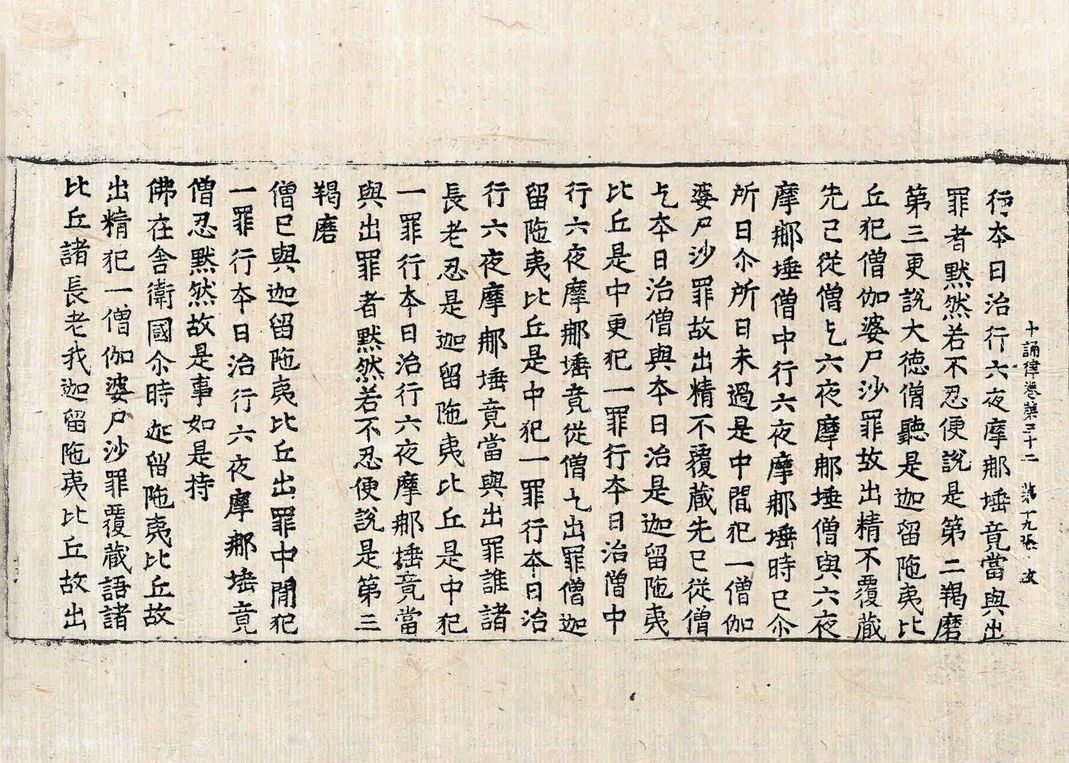 十誦律卷第三十二 第十九張
行夲日治行六夜摩那埵竟當與出
罪者默然若不忍便說是第二羯磨
第三更說大德僧聽是迦留陁夷比
丘犯僧伽婆尸沙罪故出精不覆藏
先已從僧乞六夜摩那埵僧與六夜
摩那埵僧中行六夜摩那埵時已尒
所日尒所日未過是中間犯一僧伽
婆尸沙罪故出精不覆藏先已從僧
乞夲日治僧與夲日治是迦留陁夷
比丘是中更犯一罪行夲日治僧中
行六夜摩那埵竟從僧乞出罪僧迦
留陁夷比丘是中犯一罪行夲日治
行六夜摩那埵竟當與出罪誰諸
長老忍是迦留陁夷比丘是中犯
一罪行夲日治行六夜摩那埵竟當
與出罪者默然若不忍便說是第三
羯磨
僧已與迦留陁夷比丘出罪中間犯
一罪行夲日治行六夜摩那埵竟
僧忍默然故是事如是持
佛在舍衛國尒時迦留陁夷比丘故
出精犯一僧伽婆尸沙罪覆藏語諸
比丘諸長老我迦留陁夷比丘故出